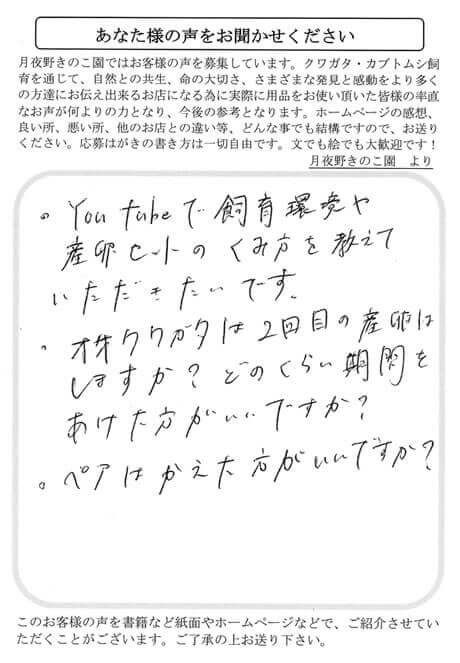 あなた様の声をお聞かせください
月夜野きのこ園ではお客様の声を募集しています。クワガタ・カブトムシ飼
育を通じて、自然との共生、命の大切さ、さまざまな発見と感動をより多く
の方達にお伝え出来るお店になる為に実際に用品をお使い頂いた皆様の率直
なお声が何よりの力となり、今後の参考となります。ホームページの感想、
良い所、悪い所、他のお店との違い等、どんな事でも結構ですので、お送り
ください。応募はがきの書き方は一切自由です。文でも絵でも大歓迎です！
月夜野きのこ園　より
。YouTubeで飼育環境や
産卵セットのくみ方を教えて
いただきたいです。
。クワガタは2回目の産卵は
しますか？どのくらい期間を
あけた方がいいですか？
。ペアはかえた方がいいですか？
このお客様の声を書籍など紙面やホームページなどで、ご紹介させてい
ただくことがございます。ご了承の上お送り下さい。